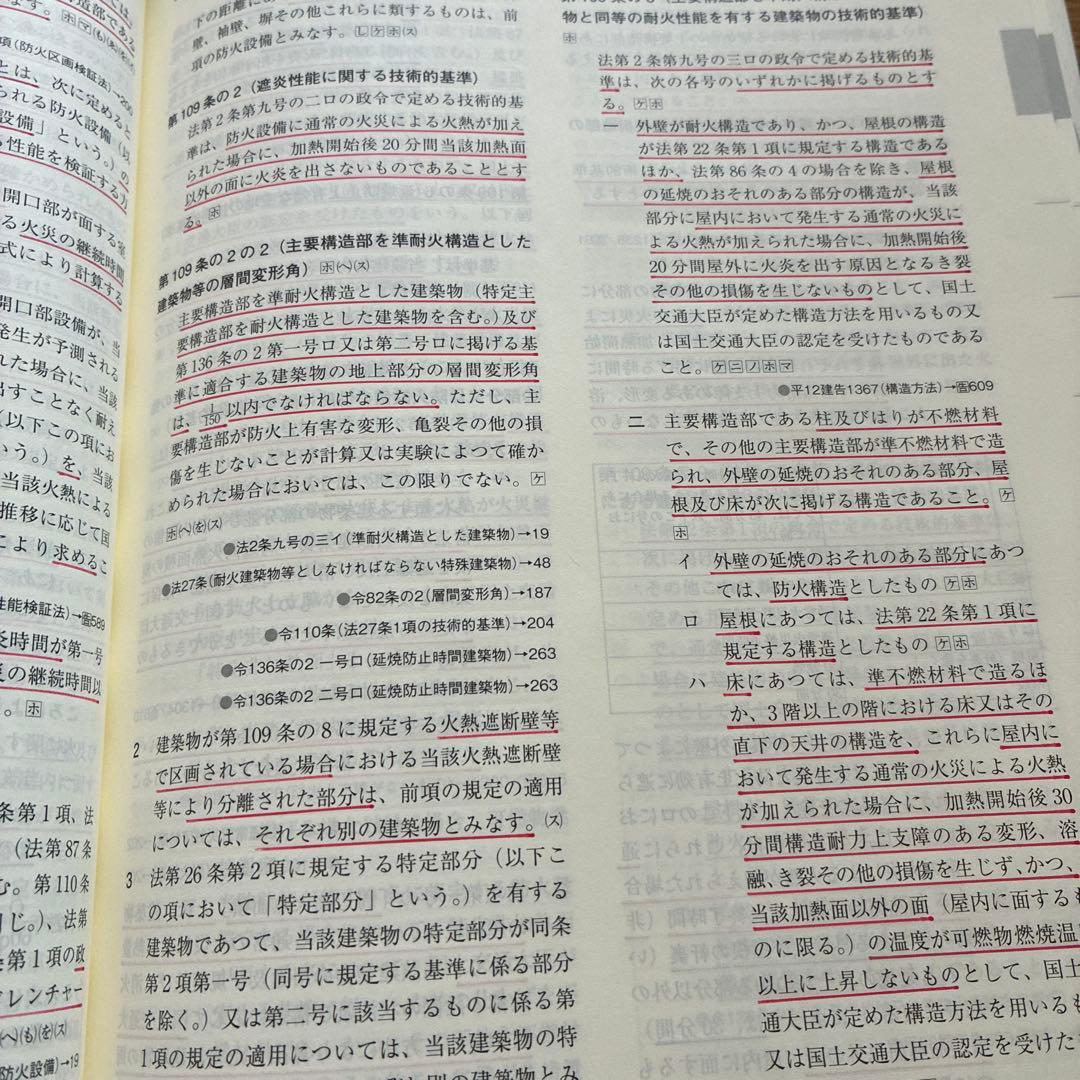 道部であ
ホマ(も)(あ)(を)
項(防火区画検証法)→200
とは、次に定めると
られる防火設備（以
設備」という。）の
る性能を検証する方
開口部が面する室
る火災の継続時間
式により計算する
開口部設備が、当
発生が予測される
れた場合に、当該
出すことなく耐え
（以下この項にお
いう。）を、当該
当該火熱による
推移に応じて国
こより求めるこ
性能検証法)→告589
炎時間が第一号
災の継続時間以
。ホ
条第1項、法
（法第87条
む。第110条
同じ。）、法第
条第1項の政
ブレンチャー
(へ)(も)(を)(ス)
防火設備)→19
下の距離にあ
壁、袖壁、塀その他これらに類するものは、前
項の防火設備とみなす。しケホ(ス)
第109条の2（遮炎性能に関する技術的基準）
法第2条第九号の二ロの政令で定める技術的基
準は、防火設備に通常の火災による火熱が加え
られた場合に、加熱開始後20分間当該加熱面
以外の面に火炎を出さないものであることとす
る。ホ
第109条の2の2（主要構造部を準耐火構造とした
建築物等の層間変形角）ホ(へ)(ス)
主要構造部を準耐火構造とした建築物（特定主
要構造部を耐火構造とした建築物を含む。）及び
第136条の2第一号ロ又は第二号ロに掲げる基
準に適合する建築物の地上部分の層間変形角
は、1/150以内でなければならない。ただし、主
要構造部が防火上有害な変形、亀裂その他の損
傷を生じないことが計算又は実験によつて確か
められた場合においては、この限りでない。ケ
ホ(へ)(を)(ス)
●法2条九号の三イ（準耐火構造とした建築物）→19
●法27条（耐火建築物等としなければならない特殊建築物）→48
●令82条の2（層間変形角）→187
●令110条（法27条1項の技術的基準）→204
●令136条の2 一号ロ（延焼防止時間建築物）→263
●令136条の2 二号ロ（延焼防止時間建築物）→263
2 建築物が第109条の8に規定する火熱遮断壁等
で区画されている場合における当該火熱遮断壁
等により分離された部分は、前項の規定の適用
については、それぞれ別の建築物とみなす。(ス)
3 法第26条第2項に規定する特定部分（以下こ
の項において「特定部分」という。）を有する
建築物であつて、当該建築物の特定部分が同条
第2項第一号（同号に規定する基準に係る部分
を除く。）又は第二号に該当するものに係る第
1項の規定の適用については、当該建築物の特
物と同等の耐火性能を有する建築物の技術的基準）
ホ
法第2条第九号の三ロの政令で定める技術的基
準は、次の各号のいずれかに掲げるものとす
る。ケホ
一 外壁が耐火構造であり、かつ、屋根の構造
が法第22条第1項に規定する構造である
ほか、法第86条の4の場合を除き、屋根
の延焼のおそれのある部分の構造が、当該
部分に屋内において発生する通常の火災に
よる火熱が加えられた場合に、加熱開始後
20分間屋外に火炎を出す原因となるき裂
その他の損傷を生じないものとして、国土
交通大臣が定めた構造方法を用いるもの又
は国土交通大臣の認定を受けたものである
こと。ケニノホマ
●平12建告1367（構造方法）→告609
二 主要構造部である柱及びはりが不燃材料
で、その他の主要構造部が準不燃材料で造
られ、外壁の延焼のおそれのある部分、屋
根及び床が次に掲げる構造であること。ケ
ホ
イ 外壁の延焼のおそれのある部分にあつ
ては、防火構造としたもの ケホ
ロ 屋根にあつては、法第22条第1項に
規定する構造としたもの ケホ
ハ 床にあつては、準不燃材料で造るほ
か、3階以上の階における床又はその
直下の天井の構造を、これらに屋内に
おいて発生する通常の火災による火熱
が加えられた場合に、加熱開始後30
分間構造耐力上支障のある変形、溶
融、き裂その他の損傷を生じず、かつ、
当該加熱面以外の面（屋内に面するも
のに限る。）の温度が可燃物燃焼温
以上に上昇しないものとして、国土
通大臣が定めた構造方法を用いるも
又は国土交通大臣の認定を受けた